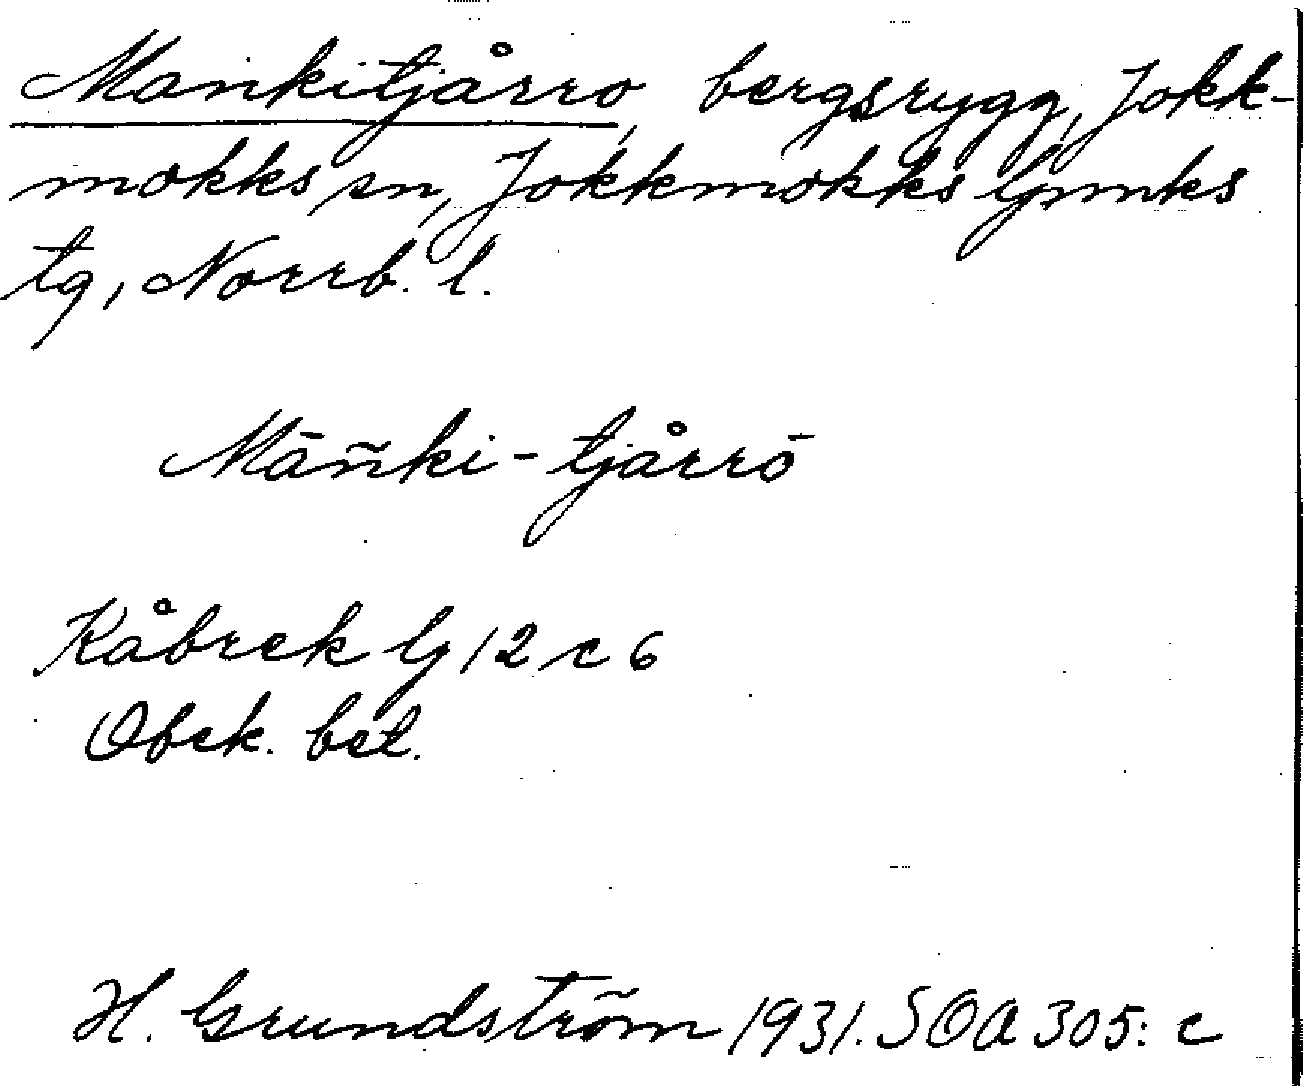 Mankitjårro, bergsrygg, Jokk-
mokks sn, Jokkmokks lpmks
tg, Norrb. l.
Māñki-tjårrō
Kåbrek lg 12 c 6
Obek. bet.
H. Grundström 1931. SOA 305: c